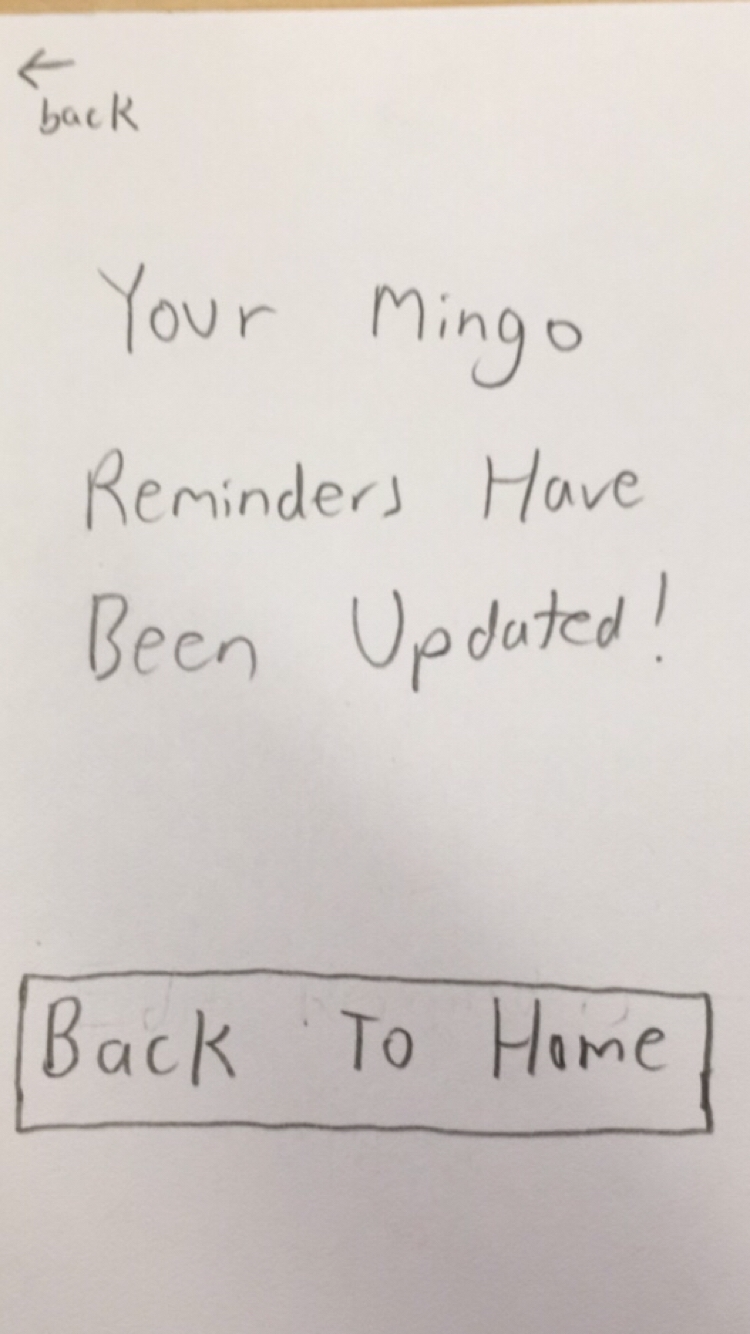 back
Your Mingo
Reminders Have
Been Updated!
Back To Home